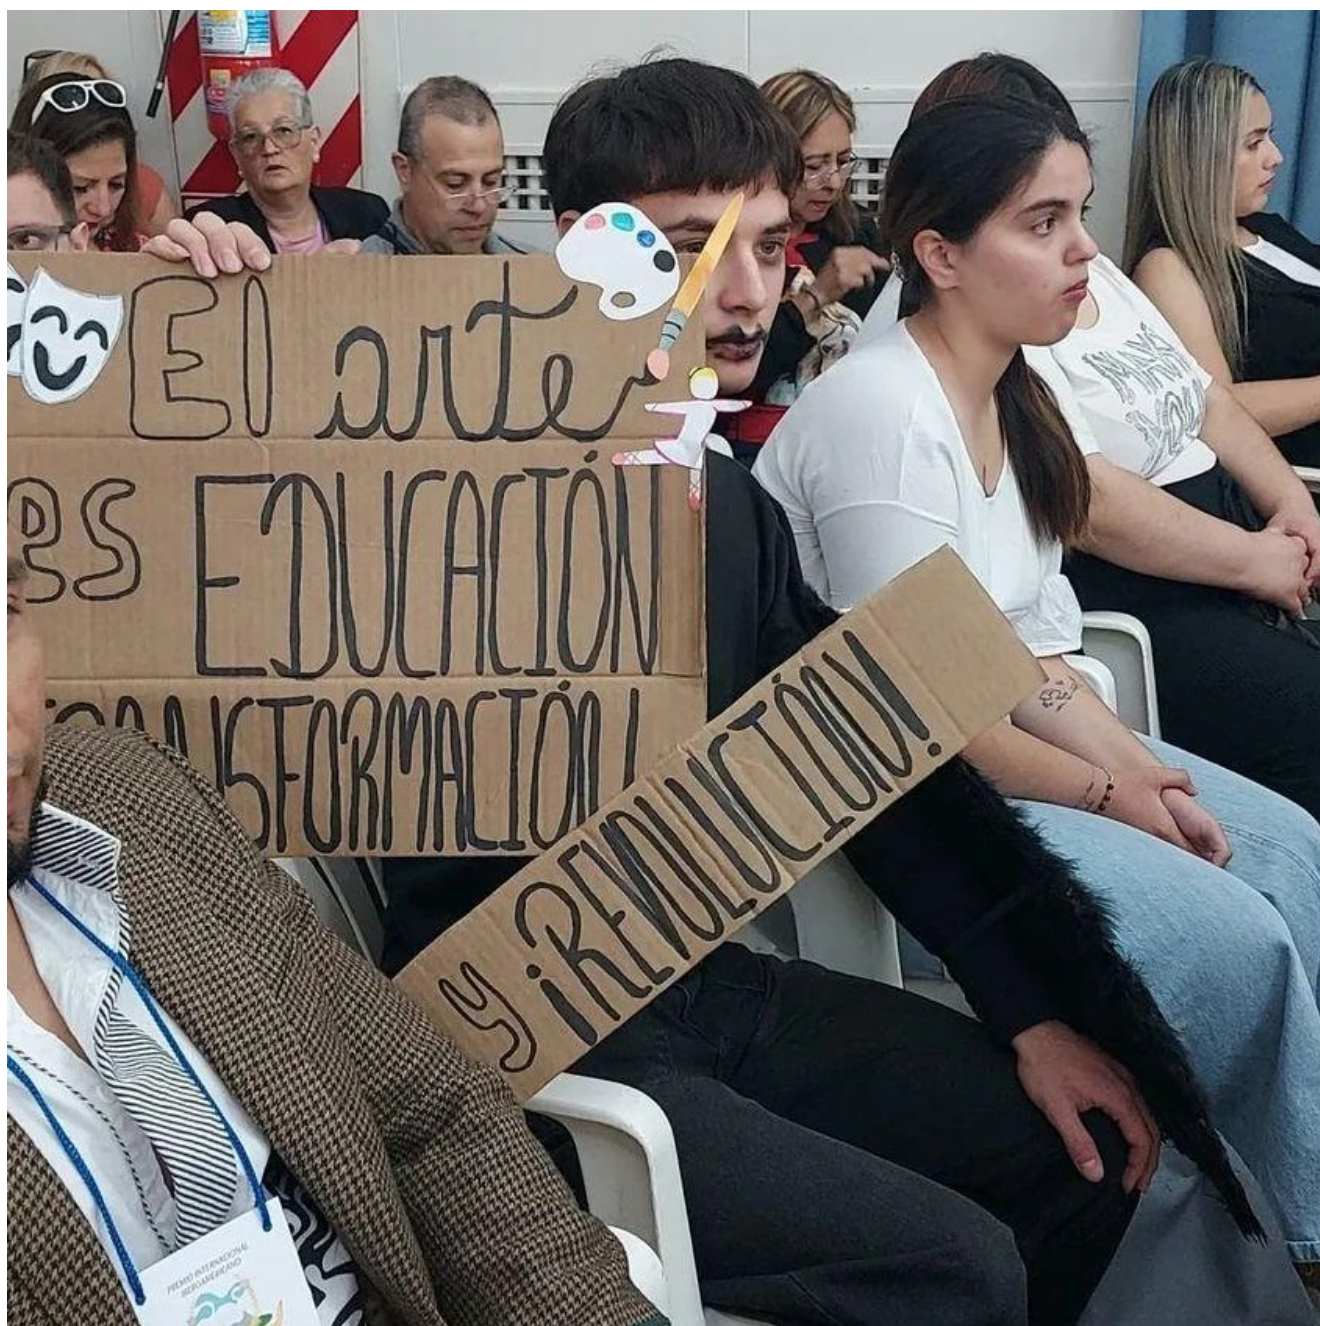 El arte
es EDUCACIÓN
TRANSFORMACIÓN!
y ¡REVOLUCIÓN!
PREMIO INTERNACIONAL
IBEROAMERICANO